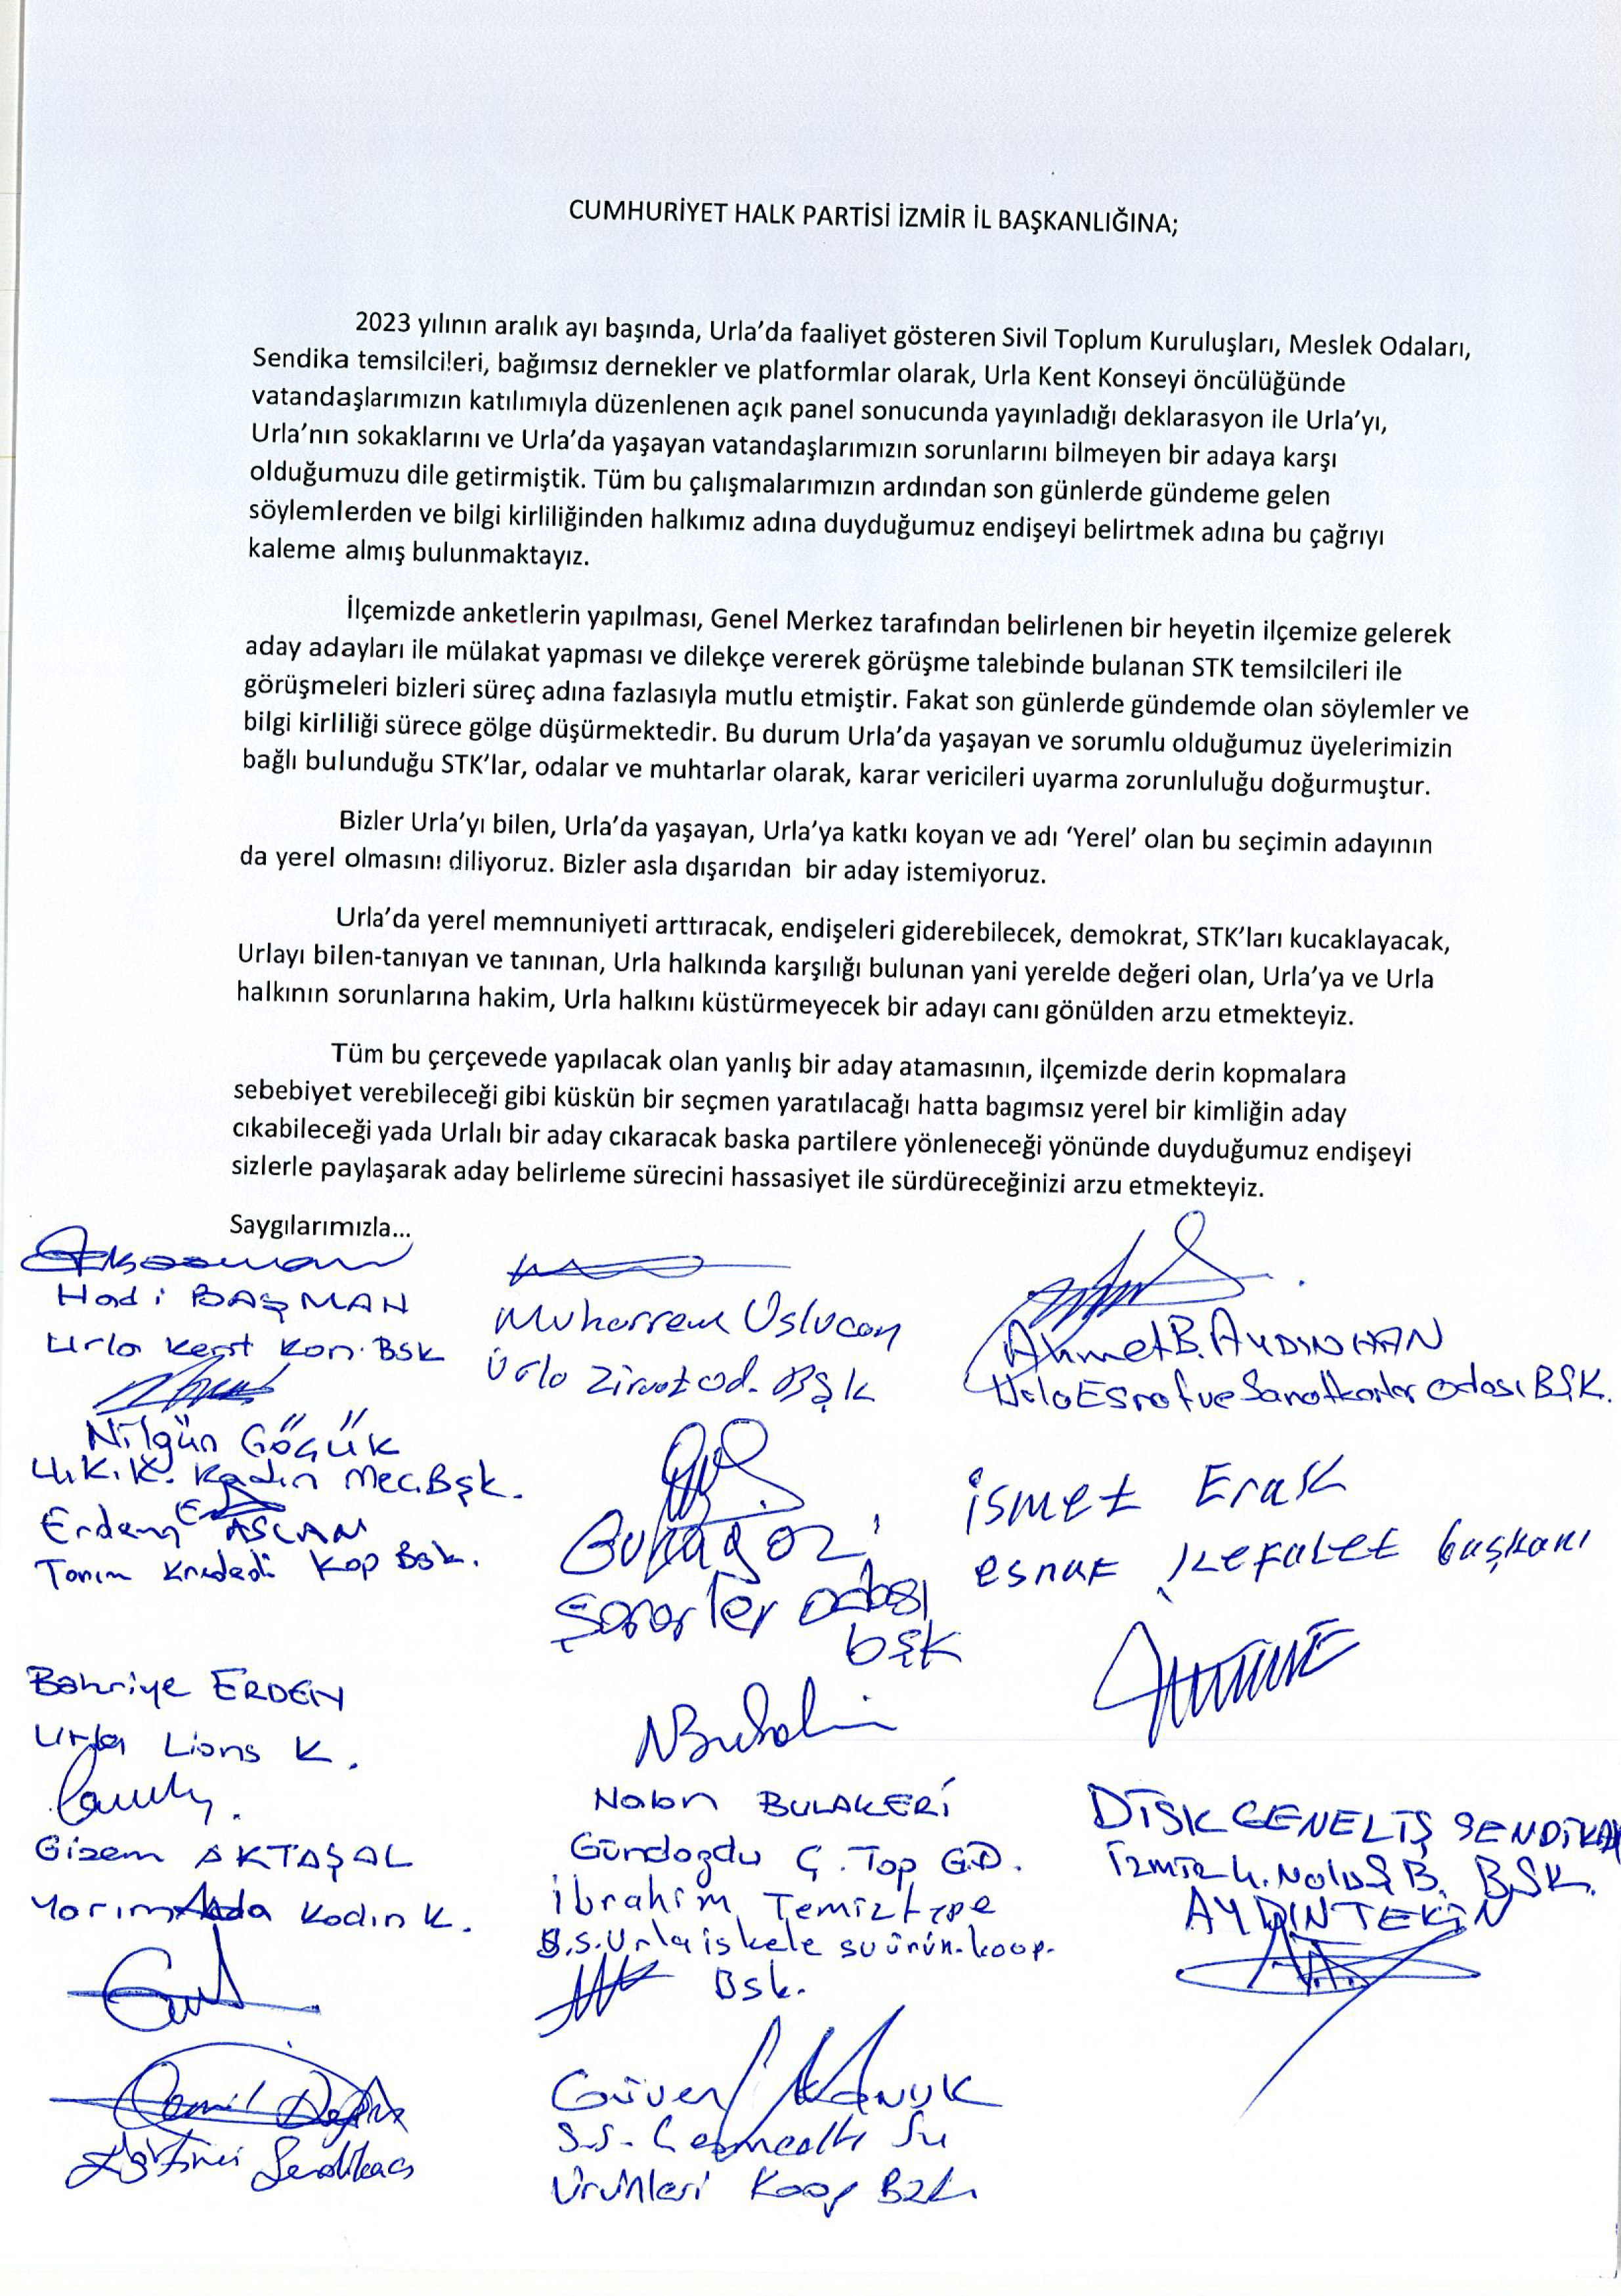 CUMHURİYET HALK PARTİSİ İZMİR İL BAŞKANLIĞINA;
2023 yılının aralık ayı başında, Urla’da faaliyet gösteren Sivil Toplum Kuruluşları, Meslek Odaları,
Sendika temsilcileri, bağımsız dernekler ve platformlar olarak, Urla Kent Konseyi öncülüğünde
vatandaşlarımızın katılımıyla düzenlenen açık panel sonucunda yayınladığı deklarasyon ile Urla’yı,
Urla’nın sokaklarını ve Urla’da yaşayan vatandaşlarımızın sorunlarını bilmeyen bir adaya karşı
olduğumuzu dile getirmiştik. Tüm bu çalışmalarımızın ardından son günlerde gündeme gelen
söylemlerden ve bilgi kirliliğinden halkımız adına duyduğumuz endişeyi belirtmek adına bu çağrıyı
kaleme almış bulunmaktayız.
İlçemizde anketlerin yapılması, Genel Merkez tarafından belirlenen bir heyetin ilçemize gelerek
aday adayları ile mülakat yapması ve dilekçe vererek görüşme talebinde bulanan STK temsilcileri ile
görüşmeleri bizleri süreç adına fazlasıyla mutlu etmiştir. Fakat son günlerde gündemde olan söylemler ve
bilgi kirliliği sürece gölge düşürmektedir. Bu durum Urla’da yaşayan ve sorumlu olduğumuz üyelerimizin
bağlı bulunduğu STK’lar, odalar ve muhtarlar olarak, karar vericileri uyarma zorunluluğu doğurmuştur.
Bizler Urla’yı bilen, Urla’da yaşayan, Urla’ya katkı koyan ve adı ‘Yerel’ olan bu seçimin adayının
da yerel olmasını diliyoruz. Bizler asla dışarıdan bir aday istemiyoruz.
Urla’da yerel memnuniyeti arttıracak, endişeleri giderebilecek, demokrat, STK’ları kucaklayacak,
Urlayı bilen-tanıyan ve tanınan, Urla halkında karşılığı bulunan yani yerelde değeri olan, Urla’ya ve Urla
halkının sorunlarına hakim, Urla halkını küstürmeyecek bir adayı canı gönülden arzu etmekteyiz.
Tüm bu çerçevede yapılacak olan yanlış bir aday atamasının, ilçemizde derin kopmalara
sebebiyet verebileceği gibi küskün bir seçmen yaratılacağı hatta bagımsız yerel bir kimliğin aday
cıkabileceği yada Urlalı bir aday cıkaracak baska partilere yönleneceği yönünde duyduğumuz endişeyi
sizlerle paylaşarak aday belirleme sürecini hassasiyet ile sürdüreceğinizi arzu etmekteyiz.
Saygılarımızla...
Hadi BAŞMAN
Urla Kent Kon. Bsk
Muharrem Uslucan
Urla Ziraat od. Bşk
Ahmet B. AYDINHAN
Urla Esnaf ve Sanatkarlar odası BŞK.
Nilgün GÖÇÜK
U.K.K. Kadın Mec. Bşk.
Erdem ASLAN
Tarım Kredi Kop Bsk.
Şoförler odası
bşk
ismet Erak
esnaf kefalet başkanı
Bahriye ERDEN
Urla Lions K.
Gizem AKTAŞAL
Yarımada Kadın K.
Nalan BULAKERİ
Gündoğdu Ç. Top G.D.
İbrahim Temiztepe
S.S. Urla iskele su ürün. koop.
Bsk.
DİSK GENEL İŞ SENDİKA
İzmir 4. Nolu Ş B. BŞK.
AYDIN TEKİN
Cemil
Güven
S.S. Çeşmealtı Su
Ürünleri Koop Bşk